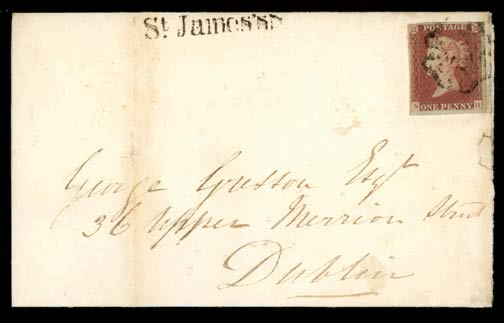 St James's St
POSTAGE
ONE PENNY
George Gresson Esqr
36 Upper Merrion Street
Dublin